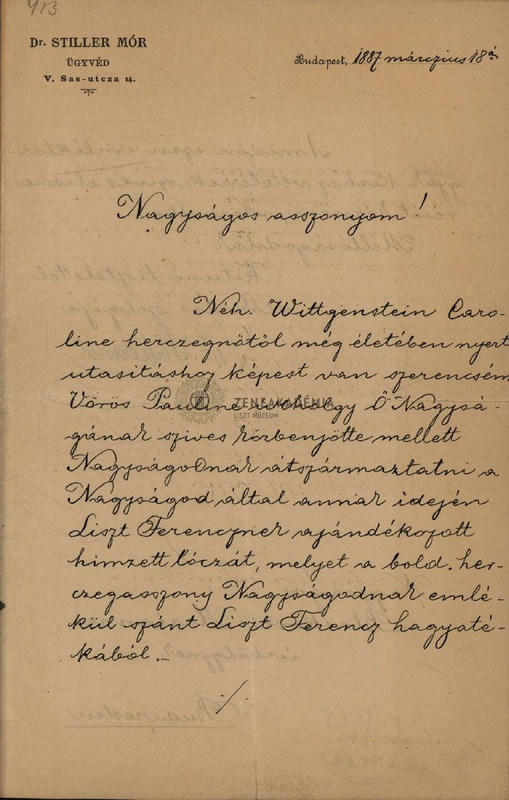 413
Dr. STILLER MÓR
ÜGYVÉD
V. Sas-utcza 14.
Budapest, 1887 márczius 18án
Nagyságos asszonyom!
Néh. Wittgenstein Caro-
line herczegnőtől még életében nyert
utasításhoz képest van szerencsém
Vörös Pauline úrhölgy Ő Nagysá-
gának szíves közbenjötte mellett
Nagyságodnak átszármaztatni a
Nagyságod által annak idején
Liszt Ferencznek ajándékozott
himzett lóczát, melyet a bold. her-
czegasszony Nagyságodnak emlé-
kül szánt Liszt Ferencz hagyaté-
kából.-
./.
ZENEAKADÉMIA
LISZT MÚZEUM
Budapesten